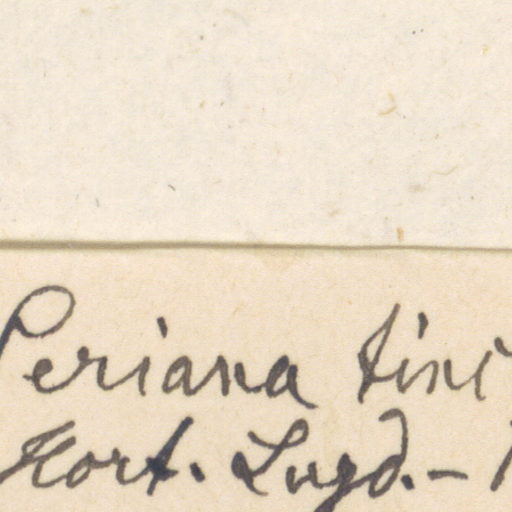 Periana tinc
Hort. Lugd. -